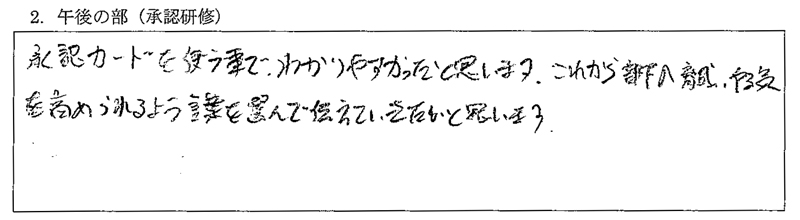 2. 午後の部（承認研修）
承認カードを使う事で、わかりやすかったと思います。これから部下へ 、やる気
を高められるよう言葉を選んで伝えていきたいと思います。